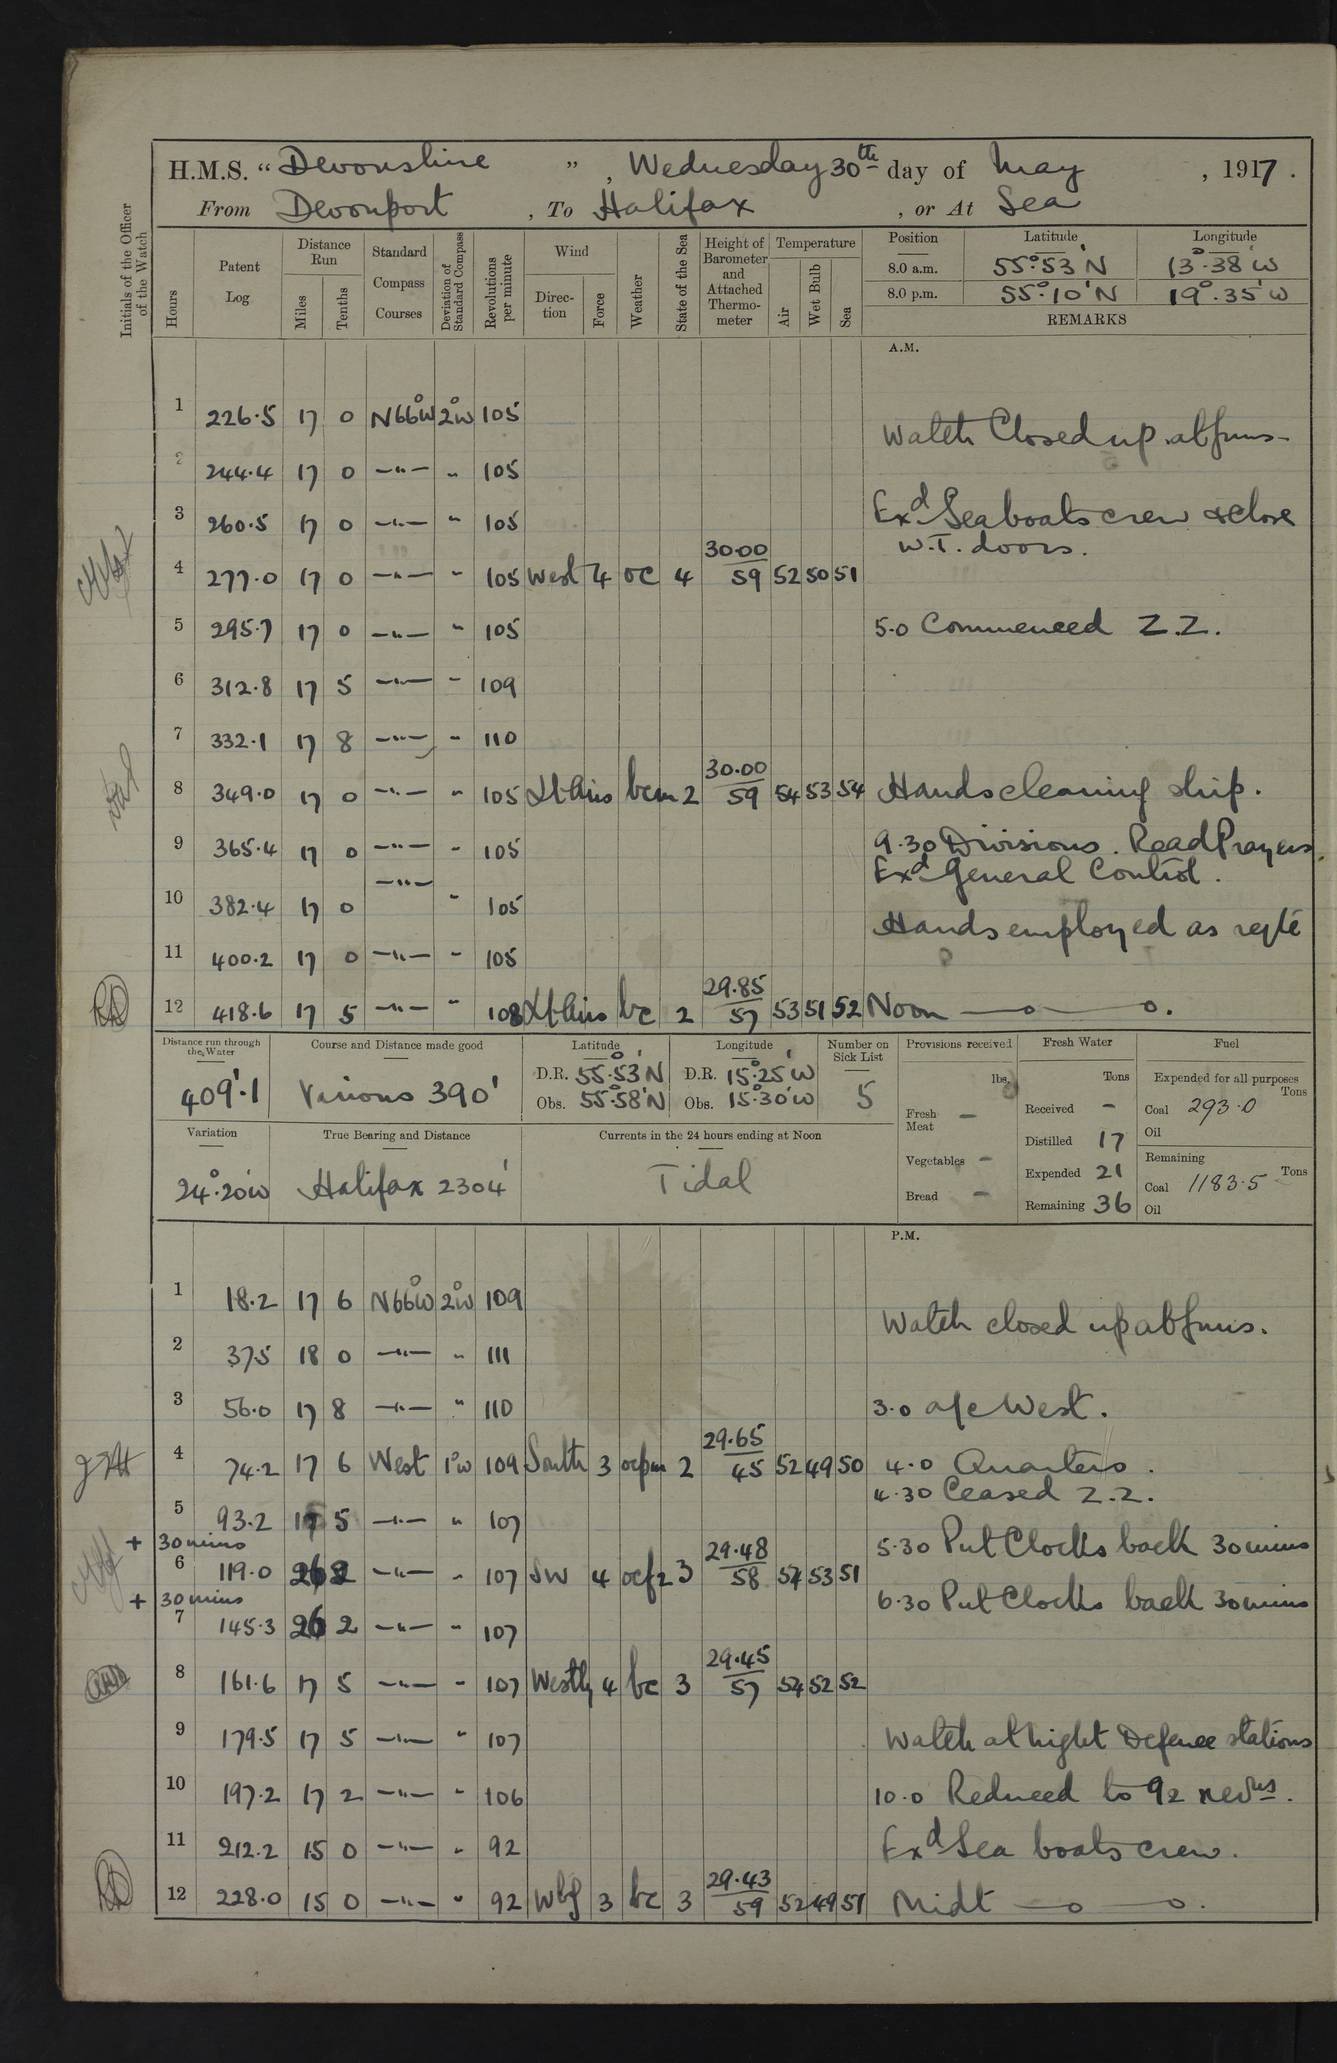 H.M.S. “Devonshire”, Wednesday 30th day of May, 1917.
From Devonport, To Halifax, or At Sea
Initials of the Officer of the Watch
Hours Patent Log Distance Run Miles Tenths Standard Compass Courses Deviation of Standard Compass Revolutions per minute Wind Direction Force Weather State of the Sea Height of Barometer and Attached Thermometer Temperature Air Wet Bulb Sea
Position Latitude Longitude
8.0 a.m. 55°.53'N 13°.38'W
8.0 p.m. 55°.10'N 19°.35'W
REMARKS
A.M.
1 226.5 17 0 N66°W 2°W 105
Watch Closed up at guns
2 244.4 17 0 —"— " 105
3 260.5 17 0 —"— " 105 Exd Seaboats crew & close
W.T. doors.
4 277.0 17 0 —"— " 105 West 4 oc 4 30.00 59 52 50 51
5 295.7 17 0 —"— " 105 5.0 Commenced Z.Z.
6 312.8 17 5 —"— " 109
7 332.1 17 8 —"— " 110
8 349.0 17 0 —"— " 105 Lt Airs bcm 2 30.00 59 54 53 54 Hands cleaning ship.
9 365.4 17 0 —"— " 105 9.30 Divisions. Read Prayers
Exd General Control.
10 382.4 17 0 —"— " 105
Hands employed as reqte
11 400.2 17 0 —"— " 105
12 418.6 17 5 —"— " 108 Lt Airs bc 2 29.85 57 53 51 52 Noon —o—o.
Distance run through the Water 409'.1
Course and Distance made good Various 390'
Latitude D.R. 55°.53'N Obs. 55°.58'N
Longitude D.R. 15°.25'W Obs. 15°.30'W
Number on Sick List 5
Provisions received lbs.
Fresh Meat —
Vegetables —
Bread —
Fresh Water Tons
Received -
Distilled 17
Expended 21
Remaining 36
Fuel
Expended for all purposes Tons
Coal 293.0
Oil
Remaining Tons
Coal 1183.5
Oil
Variation 24°.20'W
True Bearing and Distance Halifax 2304'
Currents in the 24 hours ending at Noon Tidal
P.M.
1 18.2 17 6 N66°W 2°W 109
Watch closed up at guns.
2 37.5 18 0 —"— " 111
3 56.0 17 8 —"— " 110 3.0 a/c West.
4 74.2 17 6 West 1°W 109 South 3 2 29.65 45 52 49 50 4.0 Quarters.
4.30 Ceased Z.Z.
5 93.2 17 5 —"— " 107
+ 30 mins 5.30 Put Clocks back 30 mins
6 119.0 26 2 —"— " 107 SW 4 3 29.48 58 54 53 51
+ 30 mins 6.30 Put Clocks back 30 mins
7 145.3 26 2 —"— " 107
8 161.6 17 5 —"— " 107 Westly 4 bc 3 29.45 57 54 52 52
9 179.5 17 5 —"— " 107 Watch at Night Defence stations
10 197.2 17 2 —"— " 106 10.0 Reduced to 92 revns.
11 212.2 15 0 —"— " 92 Exd Sea boats crew.
12 228.0 15 0 —"— " 92 3 bc 3 29.43 59 52 49 51 Midt —o—o.